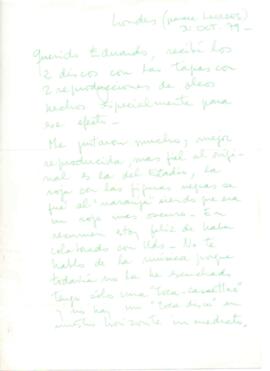 Londres (pasaje
2. OCT. 79 -
Querido Eduardo, recibí los
2 discos con las tapas con
2 reproducciones de óleos
hechos especialmente para
ese efecto -
Me gustaron mucho; mejor
reproducida, mas fiel al origi-
nal es la del Estadio, la
roja con las figuras negras se
fué al "naranja" siendo que era
un rojo mas oscuro. En
resumen estoy feliz de haber
colaborado con Uds. No te
hablo de la música porque
todavía no la he escuchado
tengo sólo una "toca-cassettes"
y no hay un "toca disco" en
nuestro horizonte inmediato.